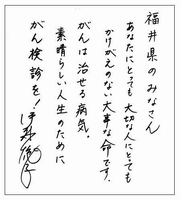 福井県のみなさん
あなたにとっても大切な人にとても
かけがえのない大事な命です.
がんは治せる病気。
素晴らしい人生のために
がん検診を!